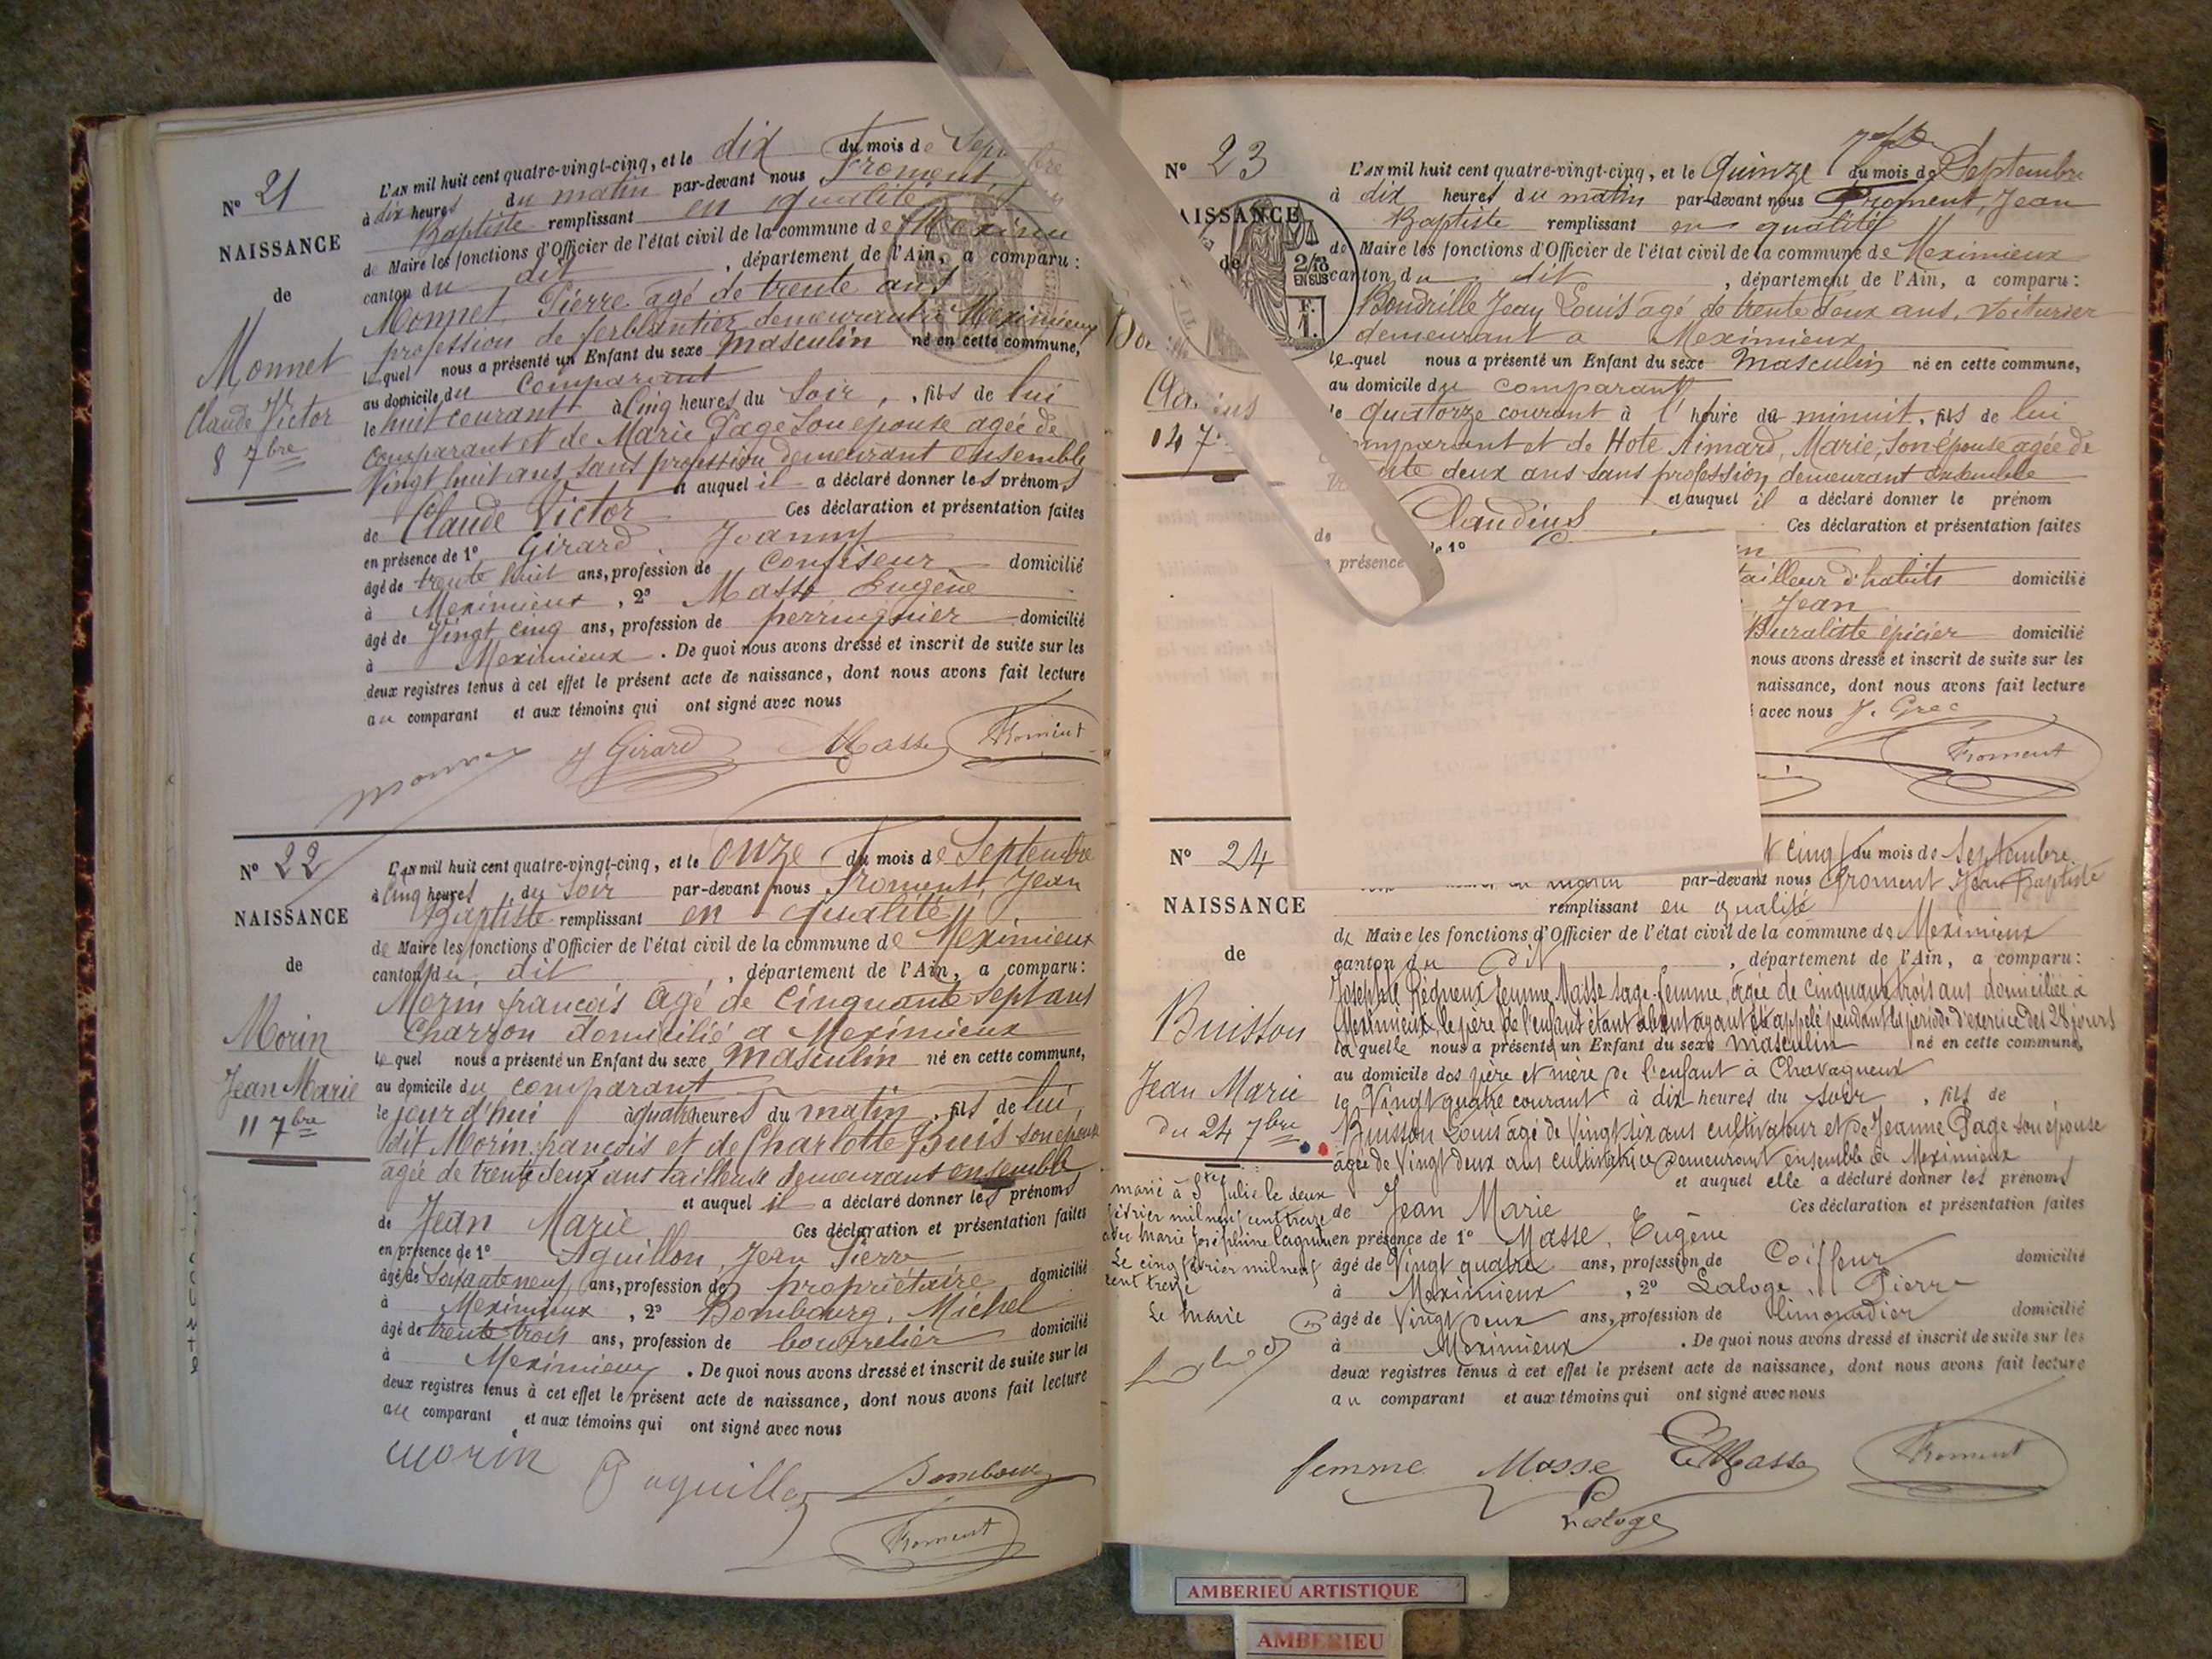 N° 21
NAISSANCE
de
Monnet
Claude Victor
8 7bre
L'AN mil huit cent quatre-vingt-cinq, et le dix du mois de
à dix heures du matin par-devant nous Froment
Baptiste remplissant en qualité
de Maire les fonctions d'Officier de l'état civil de la commune de
canton du dit, département de l'Ain, a comparu:
Monnet, Pierre agé de trente ans
profession de ferblantier demeurant à Meximieux
lequel nous a présenté un Enfant du sexe masculin né en cette commune,
au domicile du comparant
le huit courant à cinq heures du soir, fils de lui
comparant et de Marie Page son epouse agée de
Vingt huit ans, sans profession demeurant ensemble
et auquel il a déclaré donner les prénoms
de Claude Victor Ces déclaration et présentation faites
en présence de 1° Girard, Joanny
âgé de trente huit ans, profession de confiseur domicilié
à Meximieux, 2° Masse Eugène
âgé de Vingt cinq ans, profession de domicilié
à Meximieux. De quoi nous avons dressé et inscrit de suite sur les
deux registres tenus à cet effet le présent acte de naissance, dont nous avons fait lecture
au comparant et aux témoins qui ont signé avec nous
Monnet J Girard Masse Froment
N° 22
NAISSANCE
de
Morin
Jean Marie
11 7bre
L'AN mil huit cent quatre-vingt-cinq, et le onze du mois de Septembre
à cinq heures du soir par-devant nous Froment, Jean
Baptiste remplissant en qualité
de Maire les fonctions d'Officier de l'état civil de la commune de Meximieux
canton du dit, département de l'Ain, a comparu:
Morin françois agé de cinquante sept ans
Charron domicilié a Meximieux
lequel nous a présenté un Enfant du sexe masculin né en cette commune,
au domicile du comparant
le jourd'hui à quatre heures du matin, fils de lui
dit Morin françois et de Charlotte Buis son epouse
agée de trente deux ans tailleuse demeurant ensemble
et auquel il a déclaré donner les prénoms
de Jean Marie Ces déclaration et présentation faites
en présence de 1° Aguillon, Jean Pierre
âgé de soixante neuf ans, profession de propriétaire domicilié
à Meximieux, 2° Bombourg, Michel
âgé de trente trois ans, profession de bourrelier domicilié
à Meximieux. De quoi nous avons dressé et inscrit de suite sur les
deux registres tenus à cet effet le présent acte de naissance, dont nous avons fait lecture
au comparant et aux témoins qui ont signé avec nous
Morin Bombourg
Froment
N° 23
NAISSANCE
de
14 7
2/10
EN SUS
L'AN mil huit cent quatre-vingt-cinq, et le Quinze du mois de Septembre
à dix heures du matin par-devant nous Froment, Jean
Baptiste remplissant en qualité
de Maire les fonctions d'Officier de l'état civil de la commune de Meximieux
canton du dit, département de l'Ain, a comparu:
Jean Louis agé de trente deux ans, voiturier
demeurant a Meximieux
lequel nous a présenté un Enfant du sexe masculin né en cette commune,
au domicile du comparant
le quatorze courant à l'heure de minuit, fils de lui
comparant et de Hote Aimard, Marie, son épouse agée de
deux ans sans profession, demeurant ensemble
et auquel il a déclaré donner le prénom
de Claudius Ces déclaration et présentation faites
présence de 1°
tailleur d'habits domicilié
Jean
Buraliste épicier domicilié
nous avons dressé et inscrit de suite sur les
naissance, dont nous avons fait lecture
avec nous J. Grec
Froment
N° 24
NAISSANCE
de
Buisson
Jean Marie
du 24 7bre
marié à Ste Julie le deux
février mil neuf cent treize
avec Marie Joséphine
Le cinq février mil neuf
cent treize
Le Maire
cinq du mois de Septembre
par-devant nous Froment Jean Baptiste
remplissant en qualité
de Maire les fonctions d'Officier de l'état civil de la commune de Meximieux
canton du dit, département de l'Ain, a comparu:
Josephte femme Masse sage-femme, agée de cinquante trois ans domiciliée à
Meximieux, le père de l'enfant étant absent ayant été appelé pendant la période d'exercice des 28 jours
laquelle nous a présenté un Enfant du sexe masculin né en cette commune,
au domicile des père et mère de l'enfant à Chavagneux
le Vingt quatre courant à dix heures du soir, fils de
Buisson Louis agé de Vingt six ans cultivateur et de Jeanne Page son épouse
agée de Vingt deux ans cultivatrice demeurant ensemble à Meximieux
et auquel elle a déclaré donner les prénoms
de Jean Marie Ces déclaration et présentation faites
en présence de 1° Masse, Eugène
âgé de Vingt quatre ans, profession de Coiffeur domicilié
à Meximieux, 2° Laloge, Pierre
âgé de Vingt deux ans, profession de limonadier domicilié
à Meximieux. De quoi nous avons dressé et inscrit de suite sur les
deux registres tenus à cet effet le présent acte de naissance, dont nous avons fait lecture
au comparant et aux témoins qui ont signé avec nous
femme Masse E Masse Froment
Laloge
AMBERIEU ARTISTIQUE
AMBERIEU